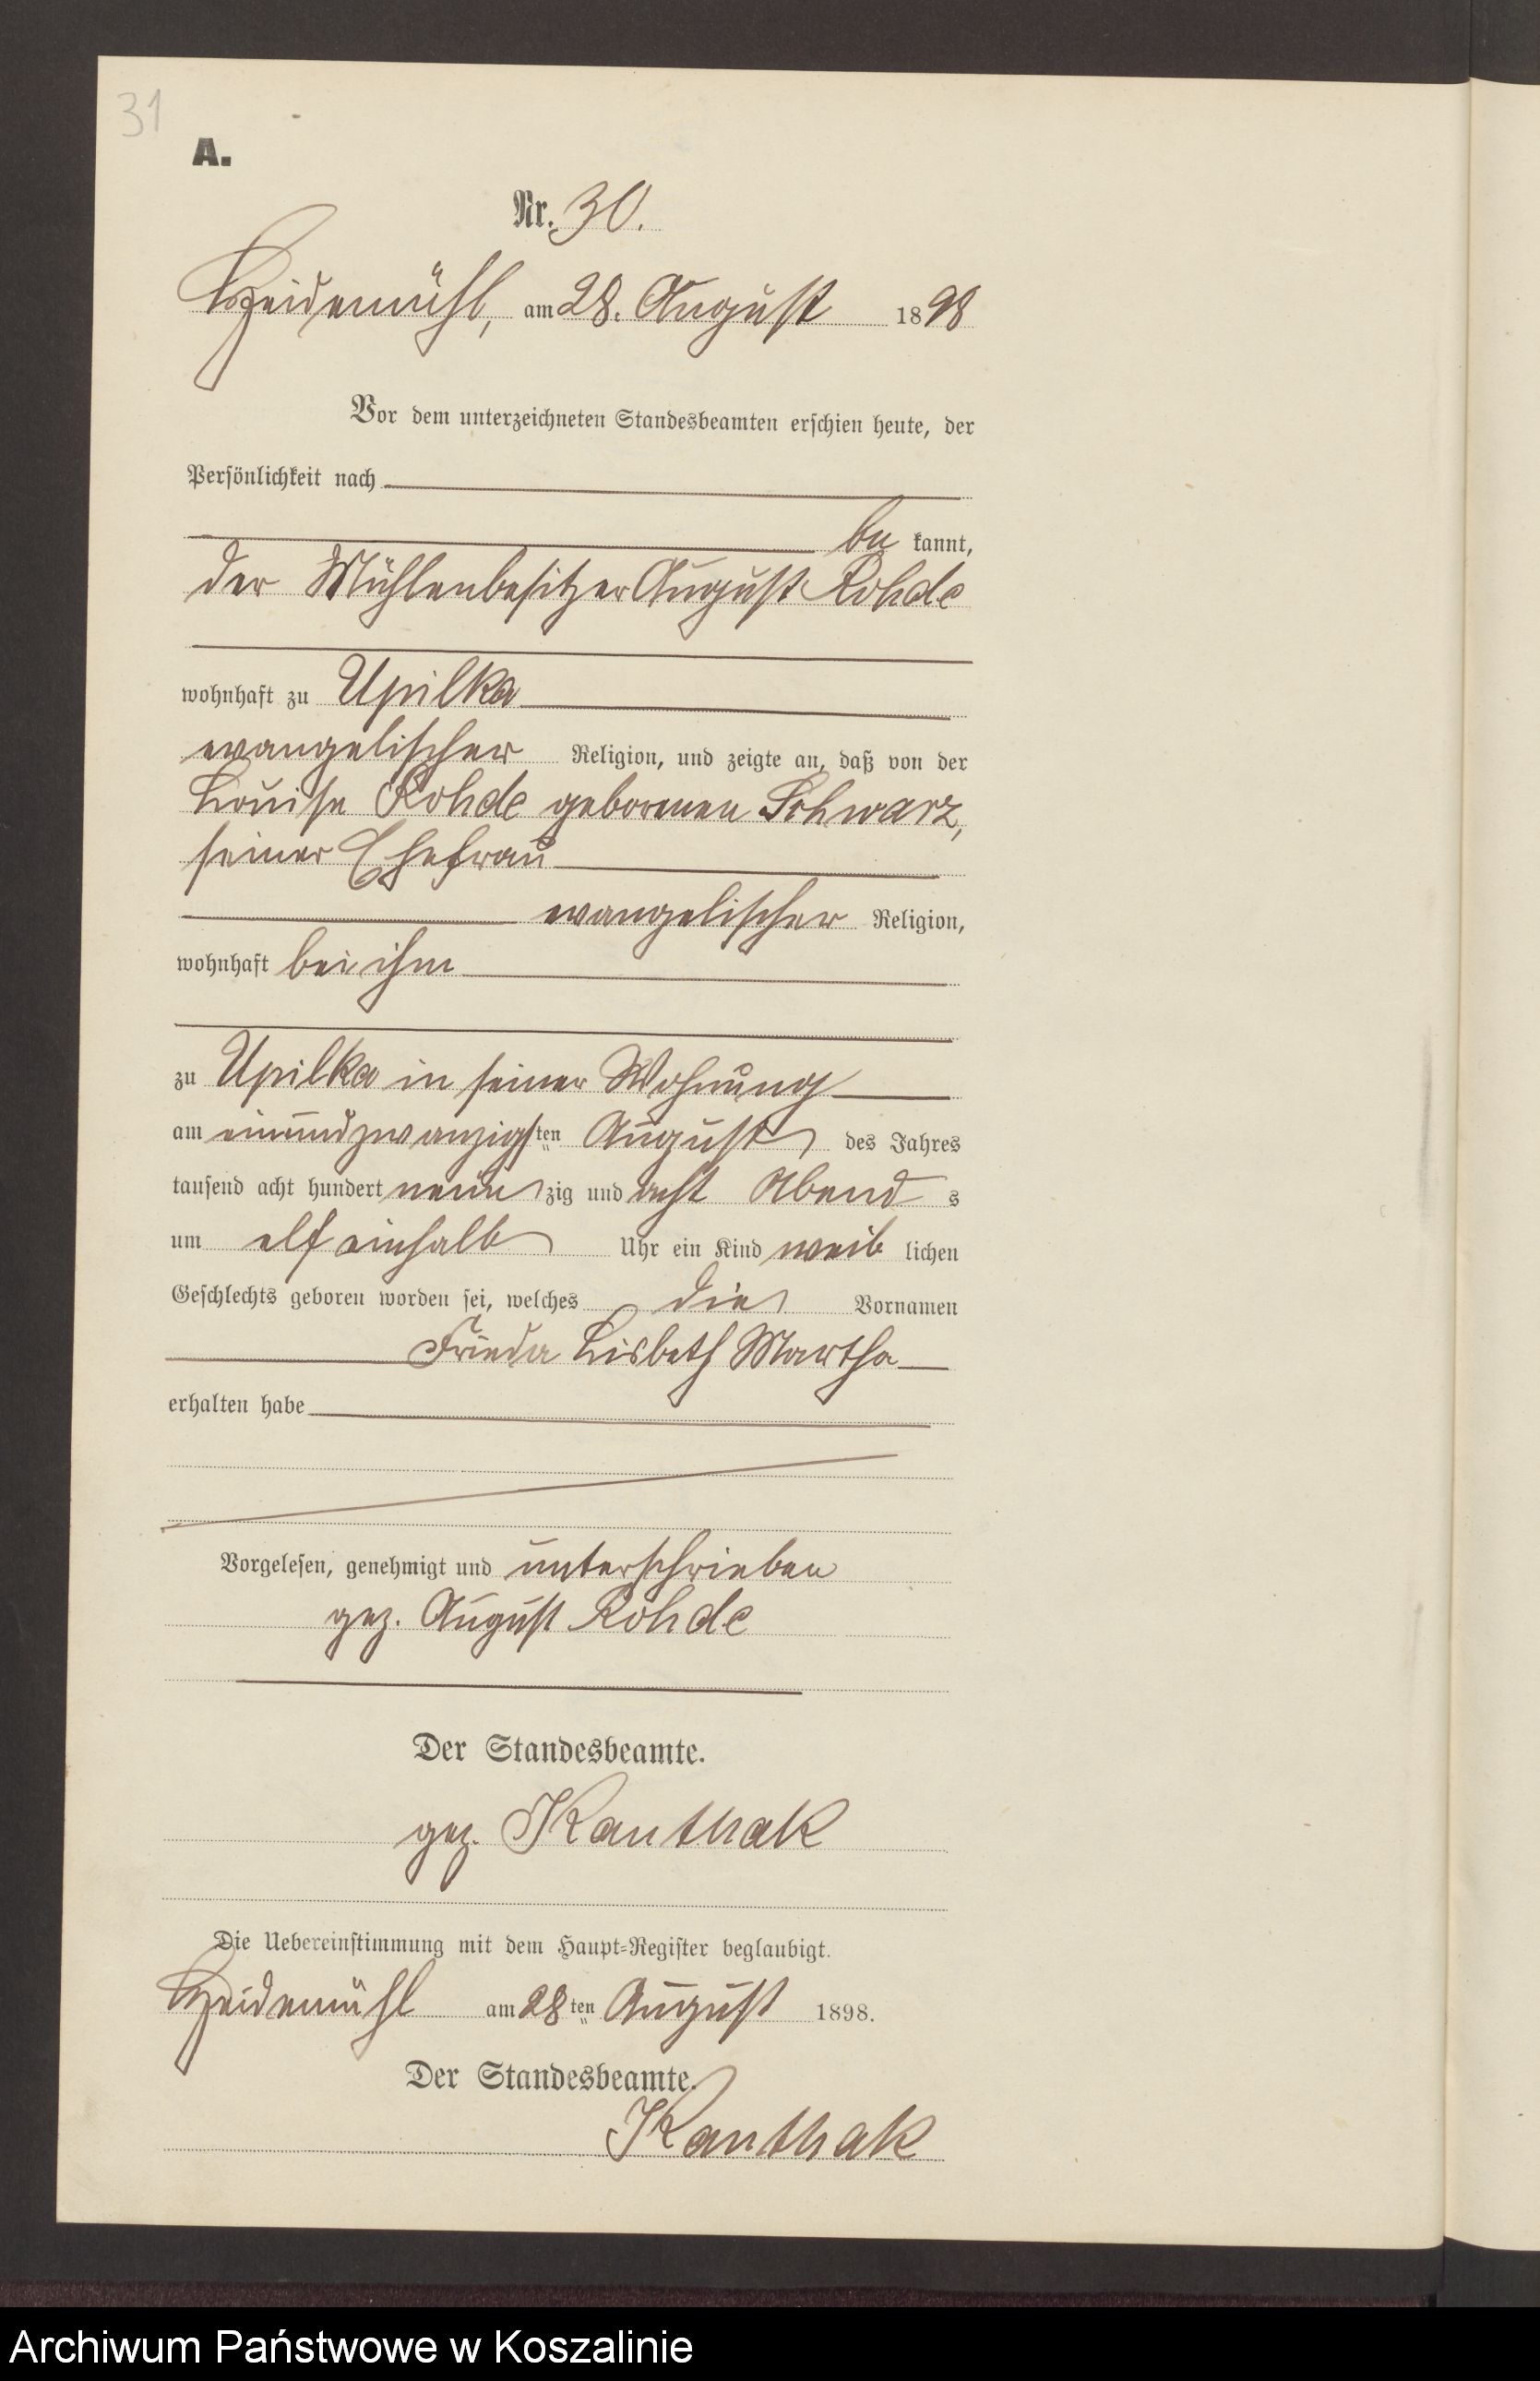 31
A.
Nr. 30.
Heidemühl, am 28. August 1898
Vor dem unterzeichneten Standesbeamten erschien heute, der
Persönlichkeit nach
be kannt,
der Mühlenbesitzer August Rohde
wohnhaft zu Upilka
evangelischer Religion, und zeigte an, daß von der
Louise Rohde geborenen Schwarz,
seiner Ehefrau
evangelischer Religion,
wohnhaft bei ihm
zu Upilka in seiner Wohnung
am einundzwanzigsten August des Jahres
tausend acht hundert neun zig und acht Abend s
um elf einhalb Uhr ein Kind weib lichen
Geschlechts geboren worden sei, welches die Vornamen
Frieda Lisbeth Martha
erhalten habe
Vorgelesen, genehmigt und unterschrieben
gez. August Rohde
Der Standesbeamte.
gez. Kanthak
Die Uebereinstimmung mit dem Haupt-Register beglaubigt.
Heidemühl am 28ten August 1898.
Der Standesbeamte.
Kanthak
Archiwum Państwowe w Koszalinie